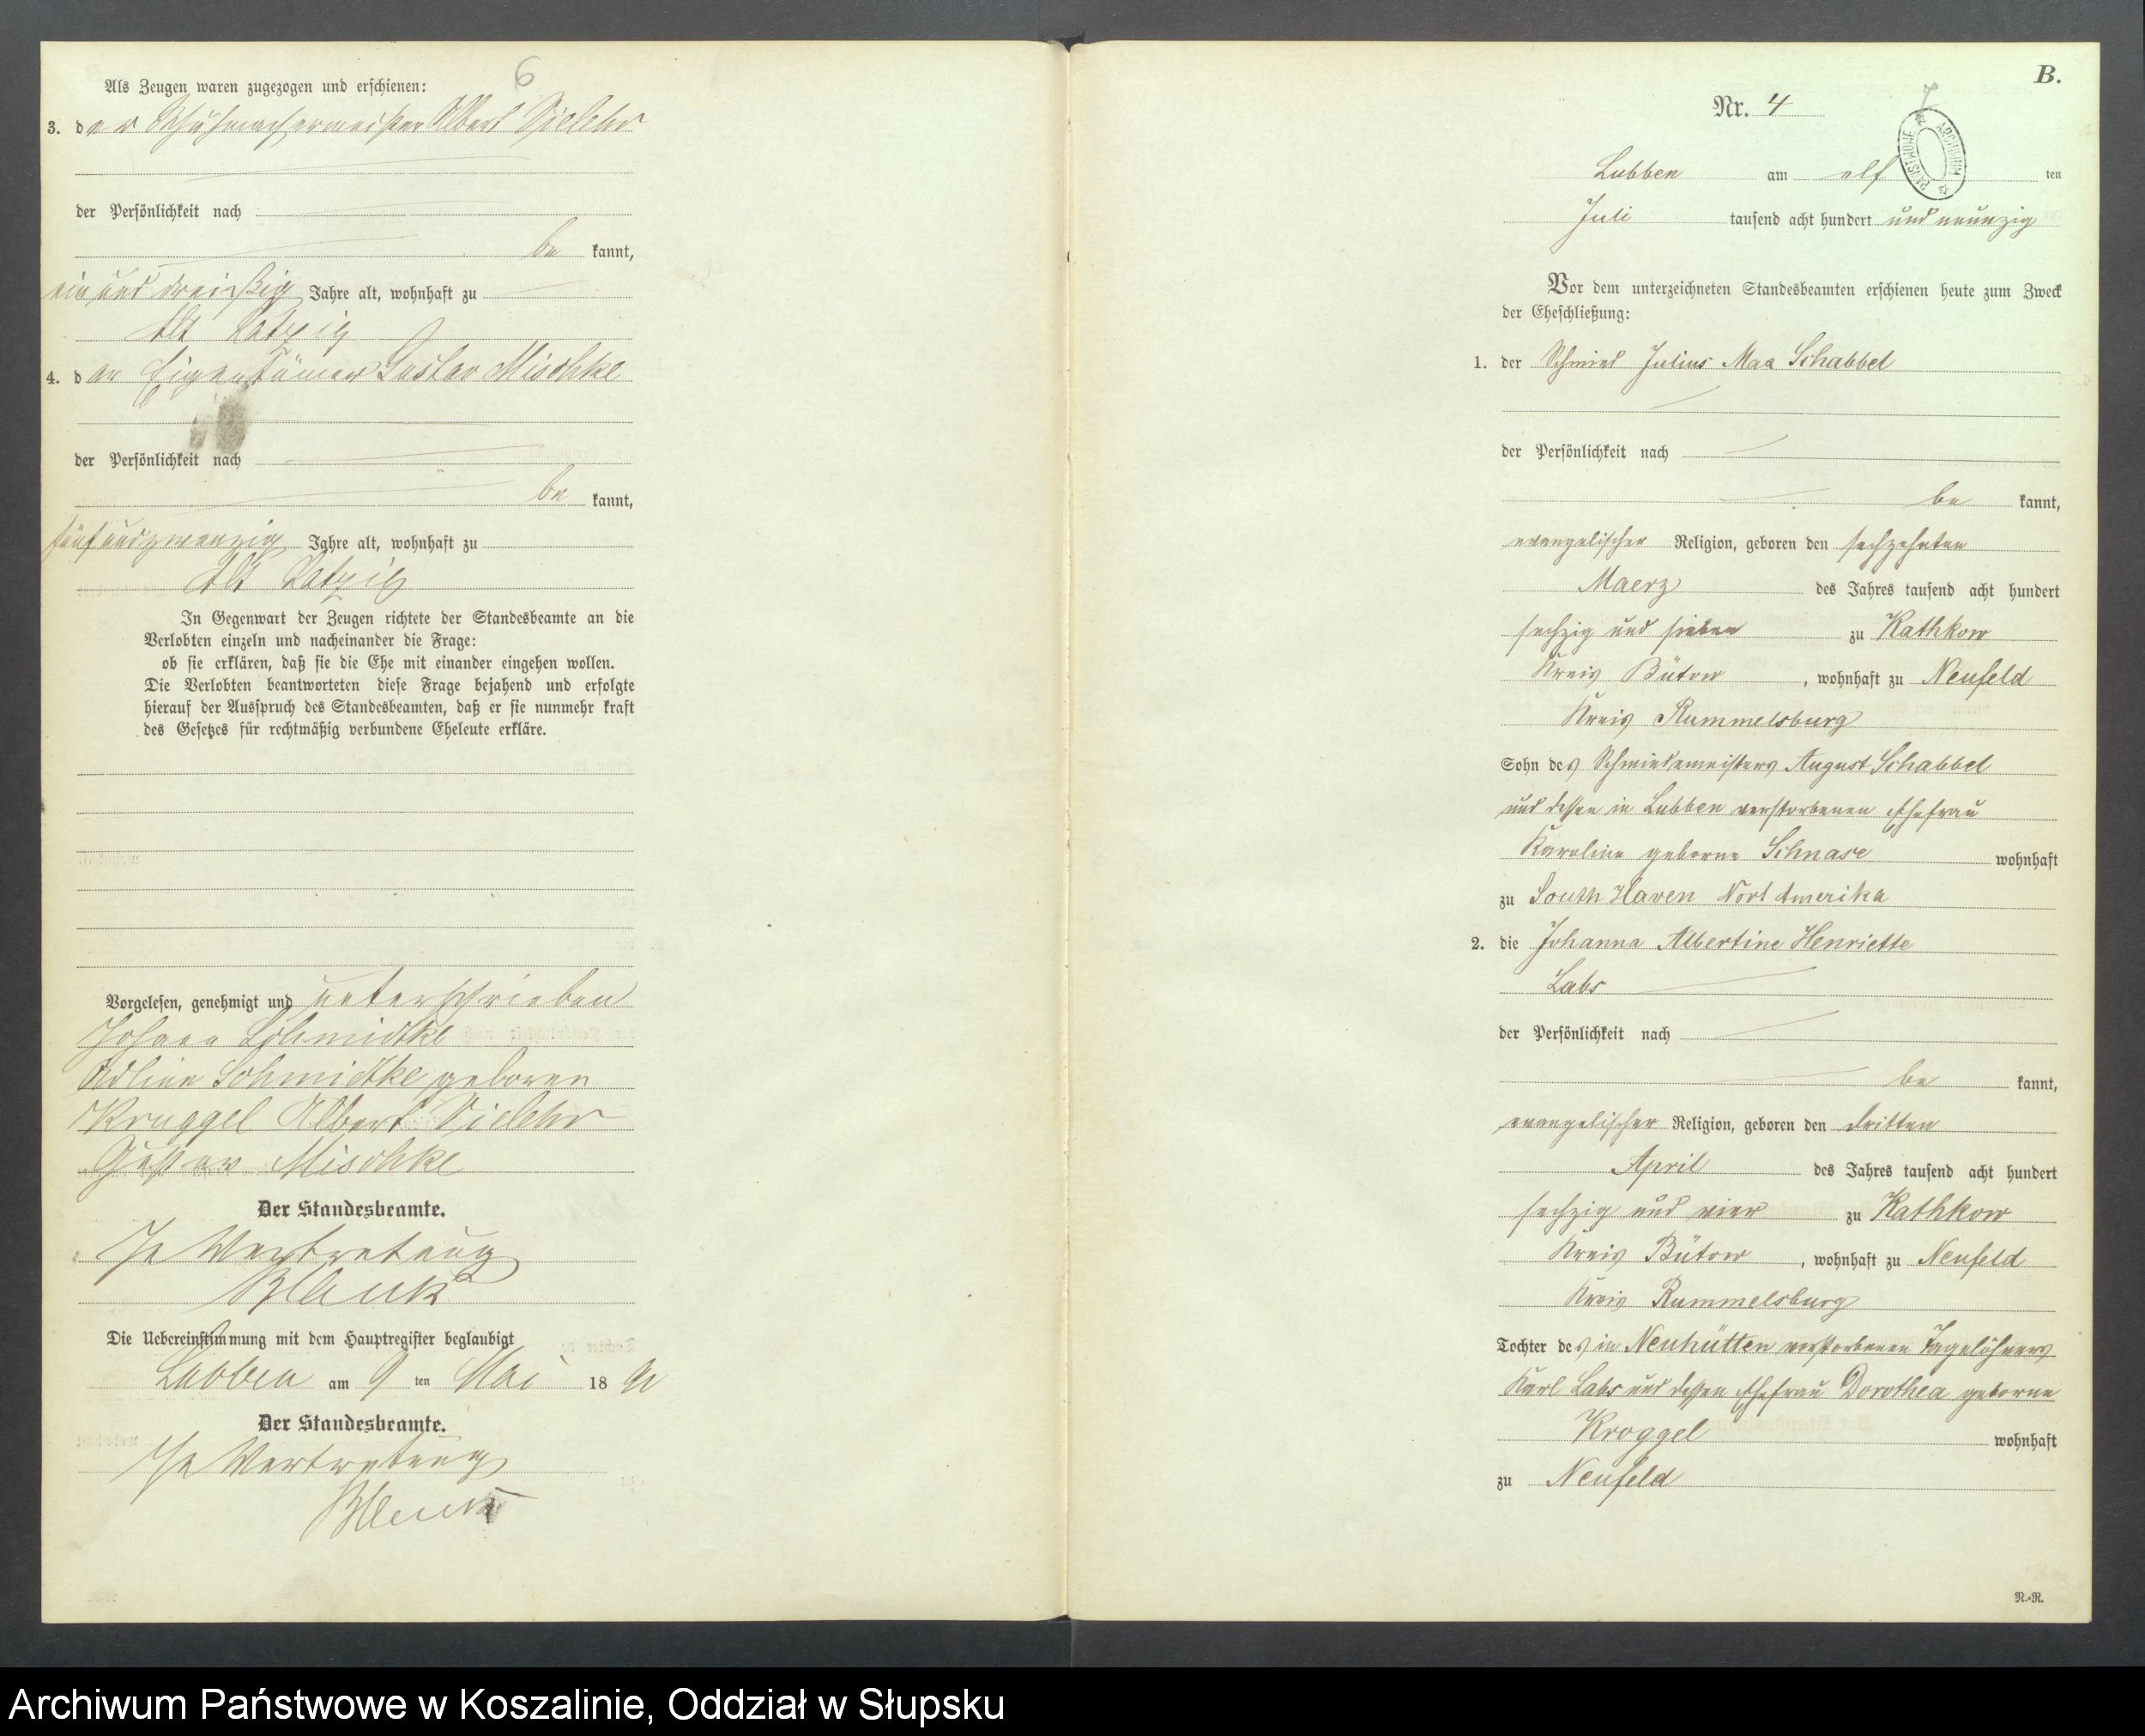 6
Als Zeugen waren zugezogen und erschienen:
3. der Schuhmachermeister Albert
der Persönlichkeit nach
be kannt,
ein und dreißig Jahre alt, wohnhaft zu
Alt Latzig
4. der Eigentümer Gustav Mischke
der Persönlichkeit nach
be kannt,
fünfundzwanzig Jahre alt, wohnhaft zu
Alt Latzig
In Gegenwart der Zeugen richtete der Standesbeamte an die
Verlobten einzeln und nacheinander die Frage:
ob sie erklären, daß sie die Ehe mit einander eingehen wollen.
Die Verlobten beantworteten diese Frage bejahend und erfolgte
hierauf der Ausspruch des Standesbeamten, daß er sie nunmehr kraft
des Gesetzes für rechtmäßig verbundene Eheleute erkläre.
Vorgelesen, genehmigt und unterschrieben
Johann Schmidtke
Schmidtke geboren
Kruggel Albert
Gustav Mischke
Der Standesbeamte.
In Vertretung
Blank
Die Uebereinstimmung mit dem Hauptregister beglaubigt
Lubben am 9 ten Mai 18
Der Standesbeamte.
In Vertretung
Blank
B.
7
Nr. 4
ARCHIWUM PAŃSTWOWE
Lubben am elf ten
Juli tausend acht hundert und neunzig
Vor dem unterzeichneten Standesbeamten erschienen heute zum Zweck
der Eheschließung:
1. der Schmied Julius Max Schabbel
der Persönlichkeit nach
be kannt,
evangelischer Religion, geboren den sechzehnten
Maerz des Jahres tausend acht hundert
sechzig und sieben zu Kathkow
Kreis Bütow, wohnhaft zu Neufeld
Kreis Rummelsburg
Sohn des Schmiedemeisters August Schabbel
und dessen in Lubben verstorbenen Ehefrau
Karoline geborne Schnase wohnhaft
zu South Haven Nort Amerika
2. die Johanna Albertine Henriette
Labs
der Persönlichkeit nach
be kannt,
evangelischer Religion, geboren den dritten
April des Jahres tausend acht hundert
sechzig und vier zu Kathkow
Kreis Bütow, wohnhaft zu Neufeld
Kreis Rummelsburg
Tochter des in Neuhütten verstorbenen Tagelöhners
Karl Labs und dessen Ehefrau Dorothea geborne
Kroggel wohnhaft
zu Neufeld
R.-R.
Archiwum Państwowe w Koszalinie, Oddział w Słupsku